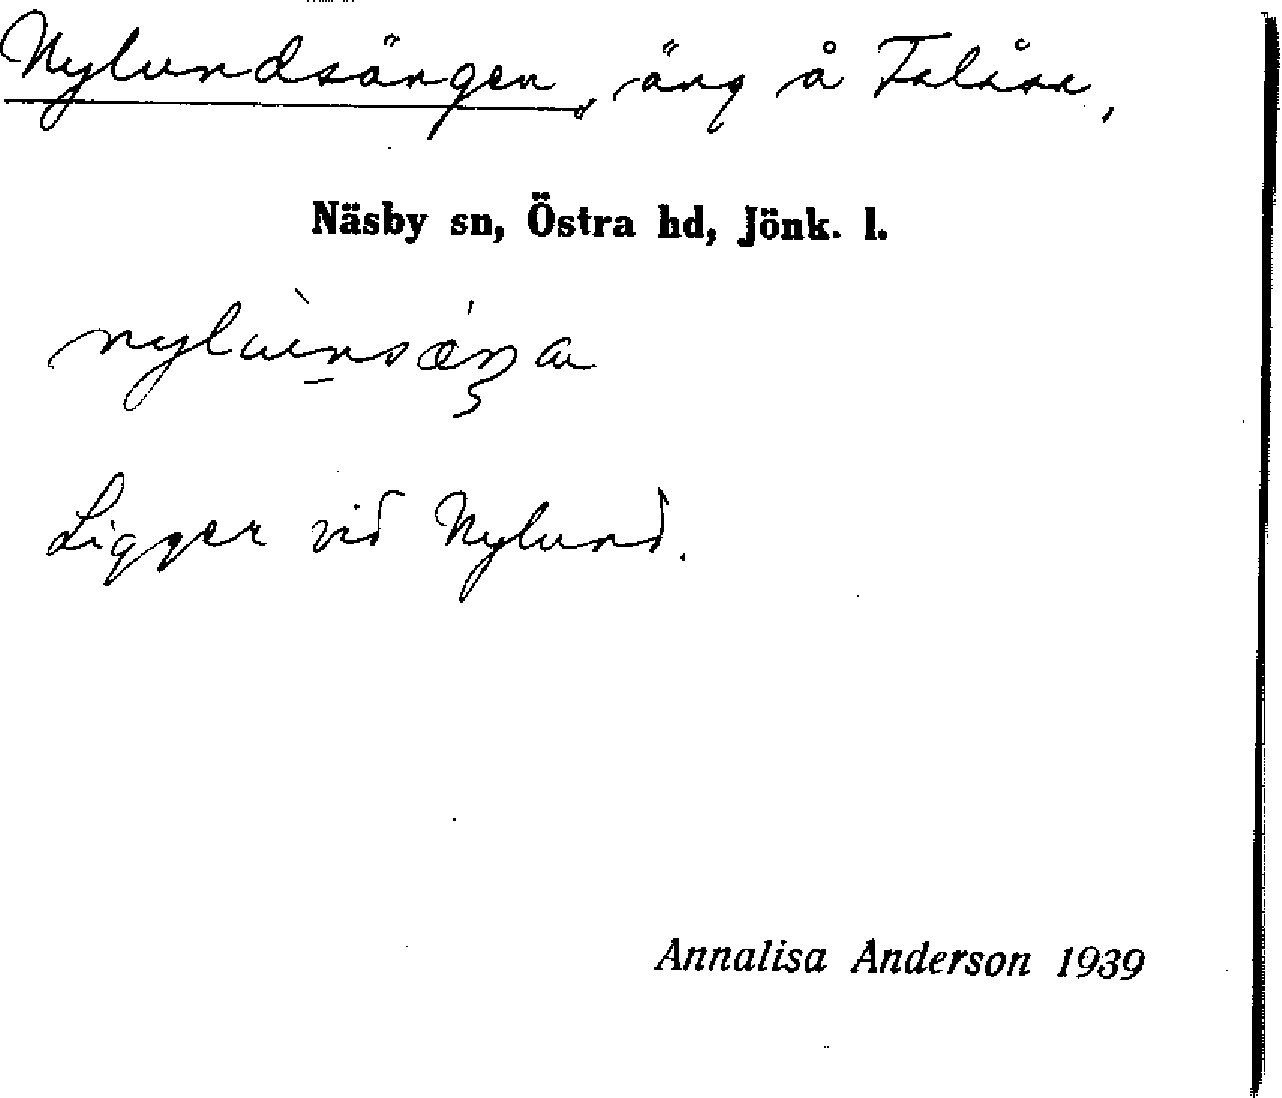 Nylundsängen, äng å Falåse,
Näsby sn, Östra hd, Jönk. l.
Ligger vid Nylund.
Annalisa Anderson 1939